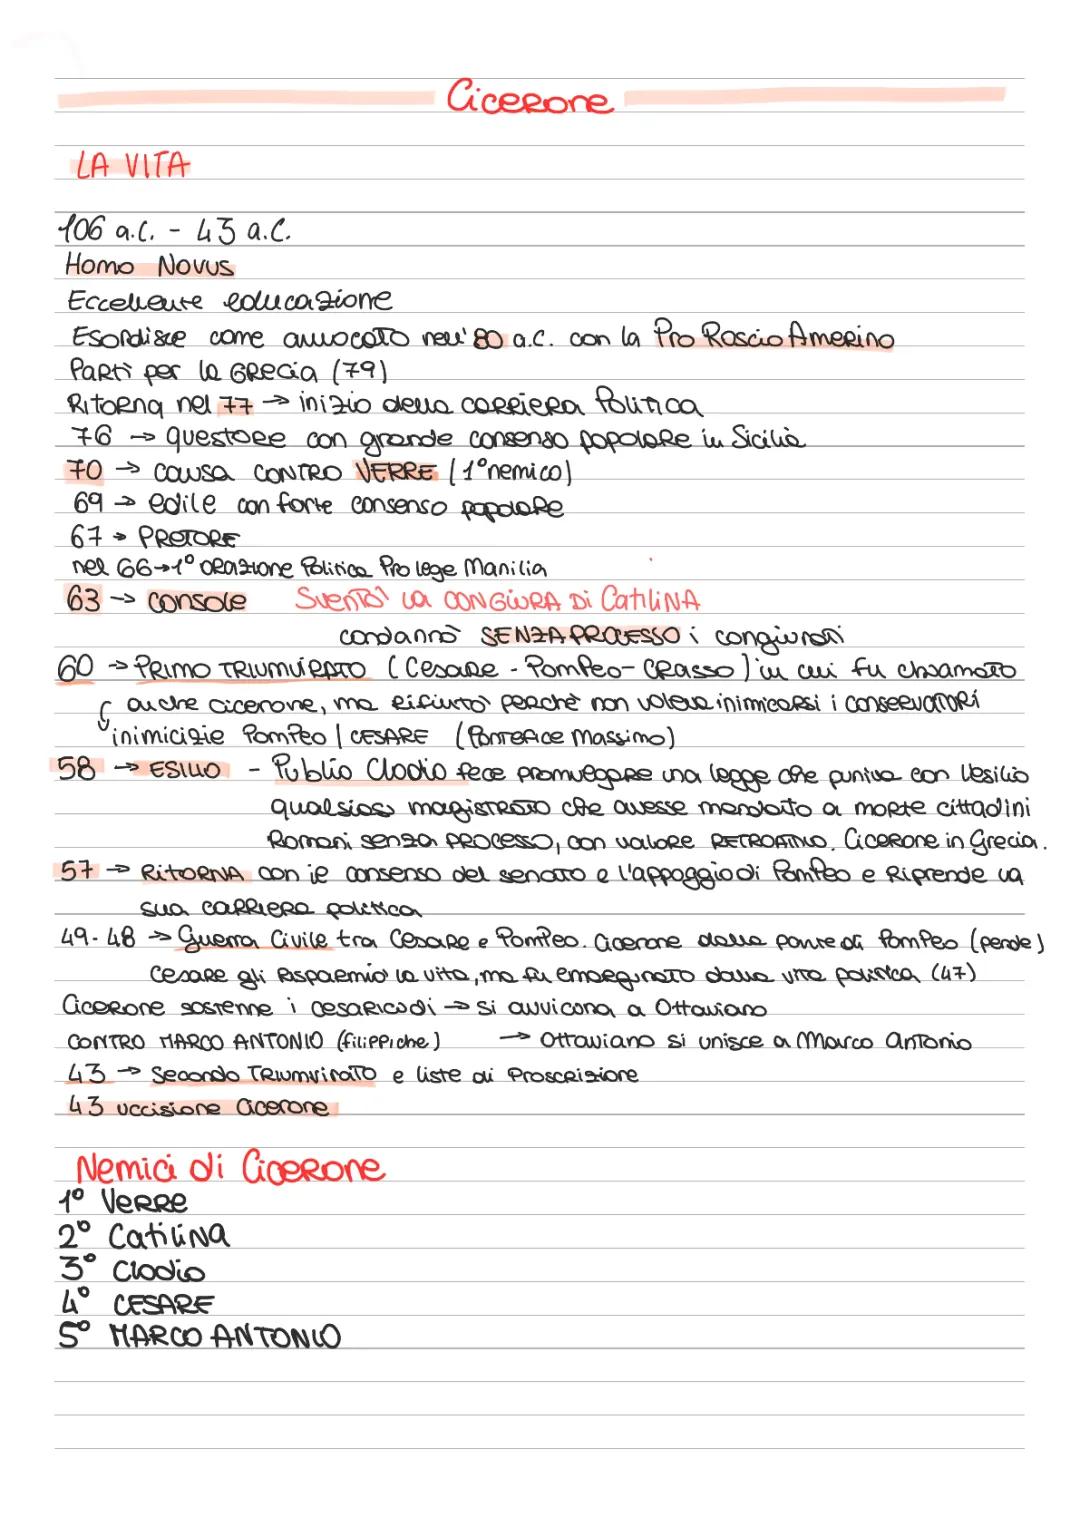 Cicerone
LA VITA
106 a.C. - 43 a.C.
Homo Novus
Eccellente educazione
Esordisce come avvocato nell'80 a.C. con la Pro Roscio Amerino
Partì per la Grecia (79)
Ritorna nel 77 → inizio della carriera Politica
76 → questore con grande consenso popolare in Sicilia
70 → causa CONTRO VERRE (1° nemico)
69 → edile con forte consenso popolare
67 → PRETORE
nel 66 → 1° orazione Politica Pro lege Manilia
63 → console Sventò la CONGIURA DI CATILINA
condannò SENZA PROCESSO i congiurati
60 → PRIMO TRIUMVIRATO (Cesare - Pompeo - Crasso) in cui fu chiamato
anche cicerone, ma rifiutò perché non voleva inimicarsi i conservatori
inimicizie Pompeo / CESARE (Pontefice Massimo)
58 → ESILIO - Publio Clodio fece promulgare una legge che puniva con l'esilio
qualsiasi magistrato che avesse mandato a morte cittadini
Romani senza processo, con valore RETROATTIVO. Cicerone in Grecia.
57 → RITORNA con il consenso del senato e l'appoggio di Pompeo e Riprende la
sua carriera politica
49-48 → Guerra Civile tra Cesare e Pompeo. Cicerone dalla parte di Pompeo (perde)
Cesare gli risparmiò la vita, ma fu emarginato dalla vita politica (47)
Cicerone sostenne i cesaricidi → si avvicina a Ottaviano
CONTRO MARCO ANTONIO (filippiche) → Ottaviano si unisce a Marco Antonio
43 → Secondo Triumvirato e liste di Proscrizione
43 uccisione Cicerone
Nemici di Cicerone
1° Verre
2° Catilina
3° Clodio
4° CESARE
5° MARCO ANTONIO